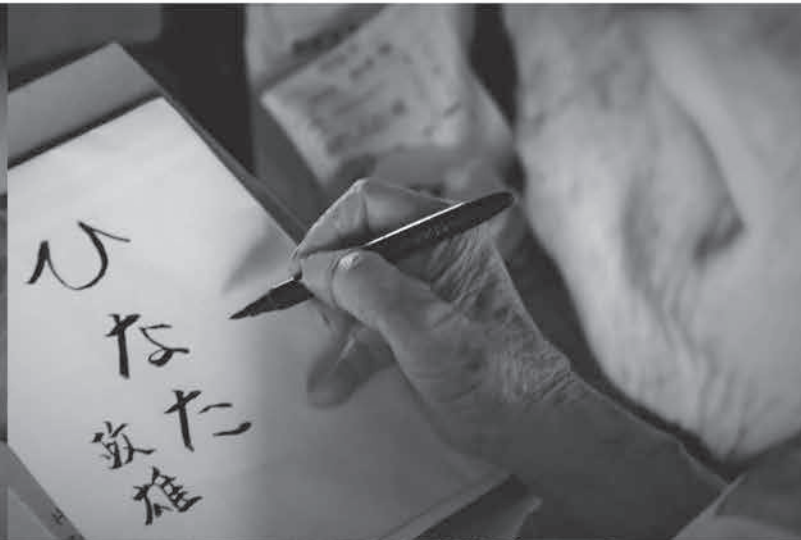 ひなた
敏雄